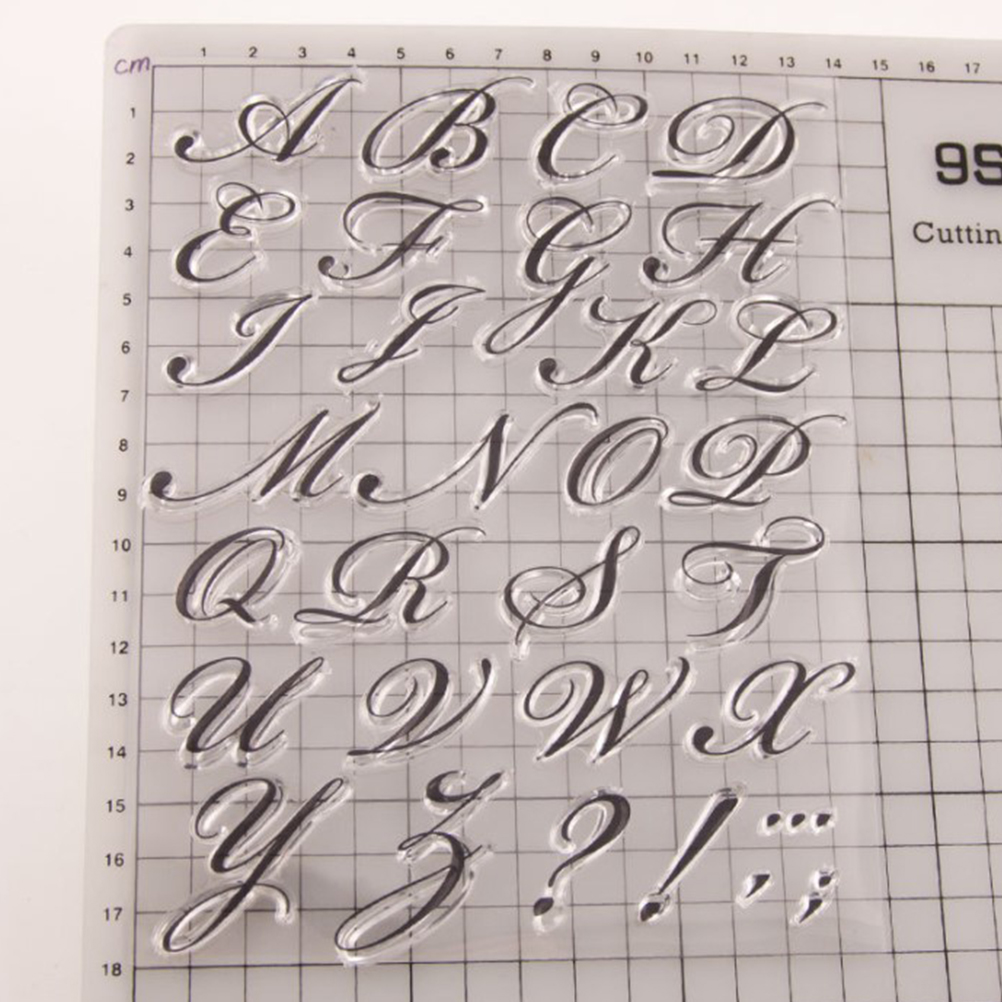 1 2 3 4 5 6 7 8 9 10 11 12 13 14 15 16 17
cm
1
2
3
4
5
6
7
8
9
10
11
12
13
14
15
16
17
18
A B C D
E F G H
I J K L
M N O P
Q R S T
U V W X
Y Z ? ! ... , ;
9S
Cuttin